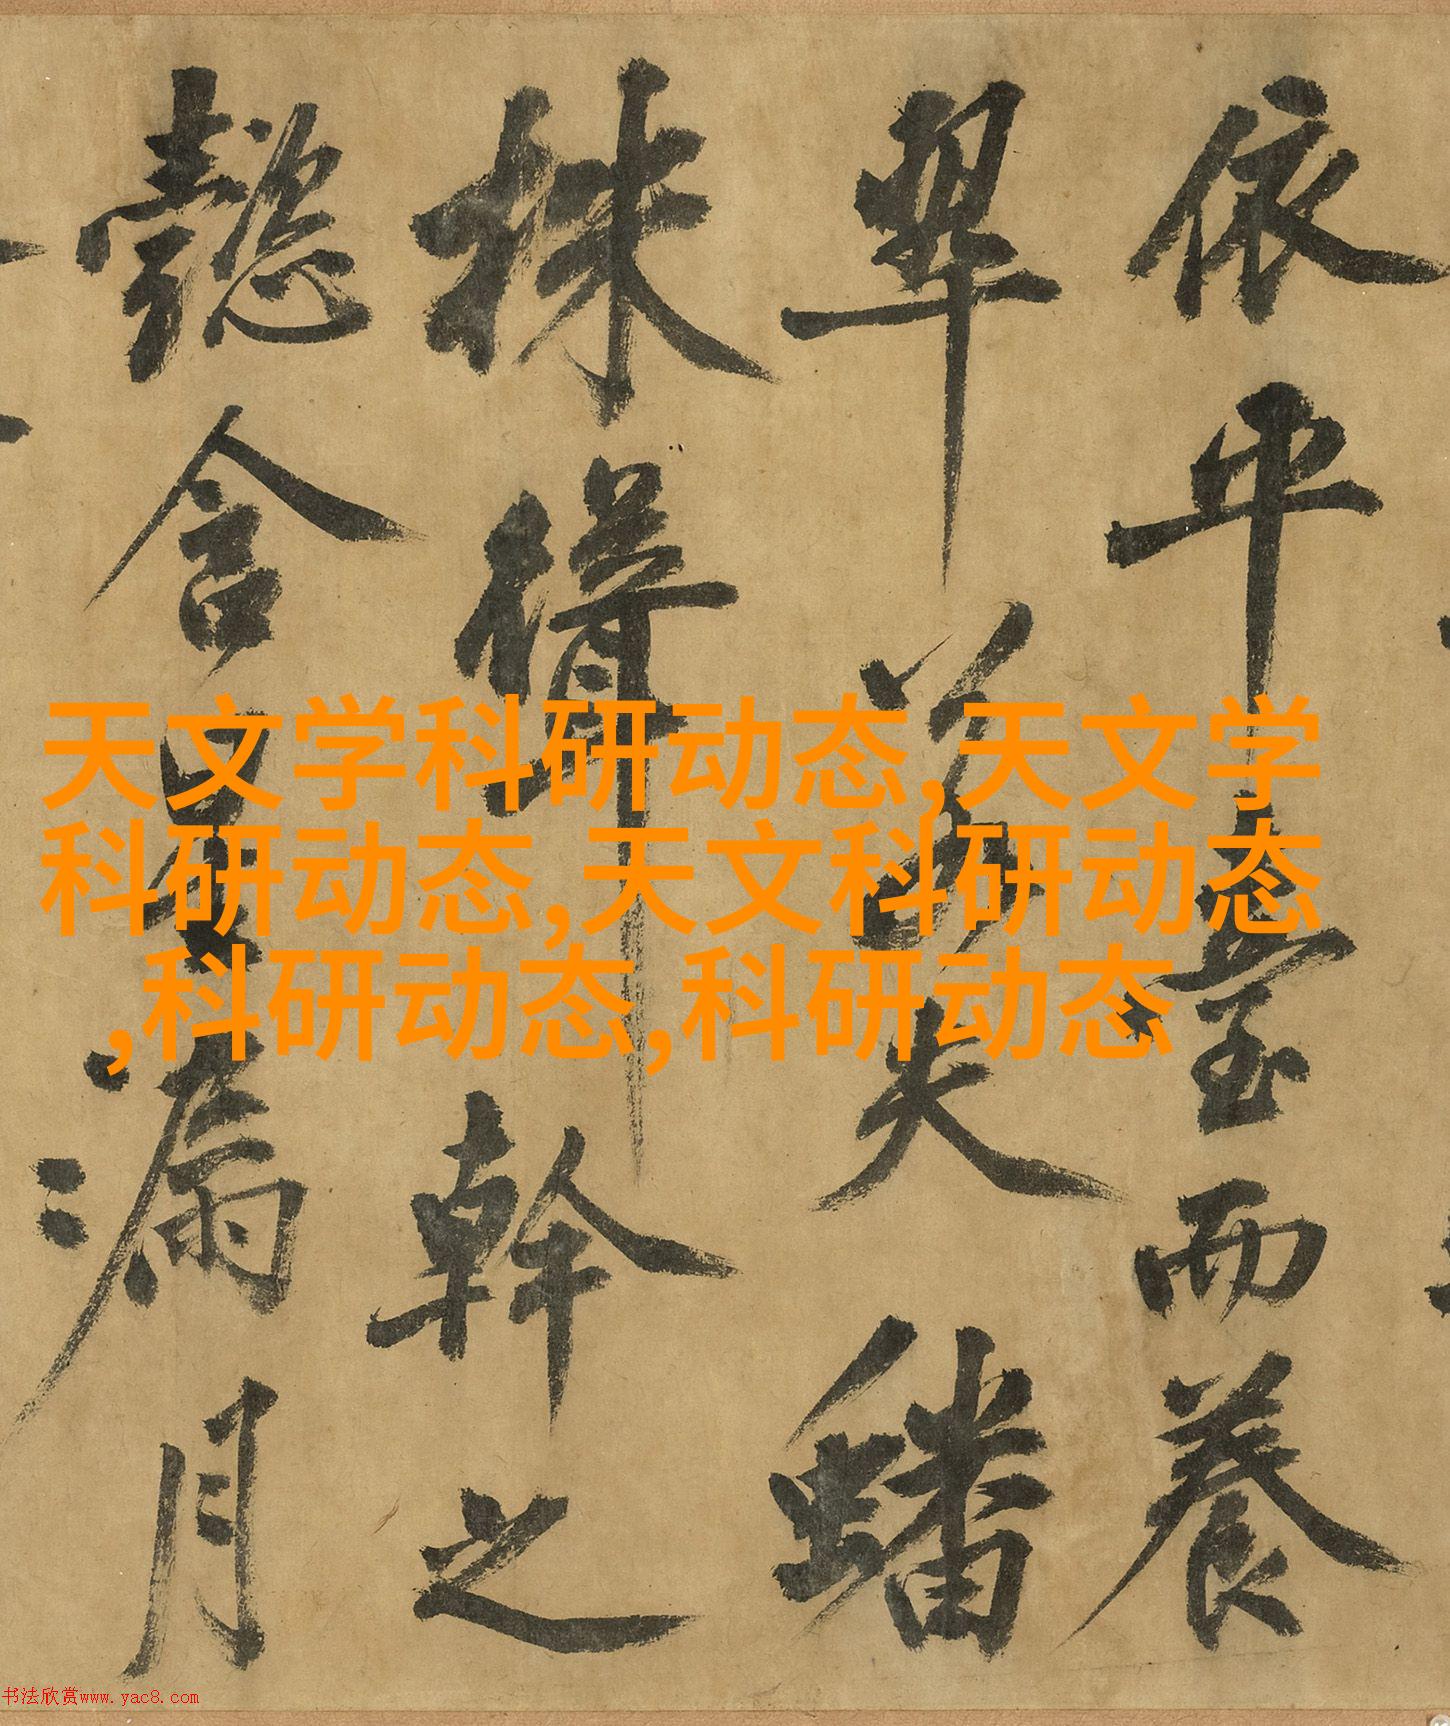 依平臺而養
翠若夫蟠
株聳幹之
懿含星漏月
天文学科研动态,天文学
科研动态,天文科研动态
,科研动态,科研动态
书法欣赏www.yac8.com